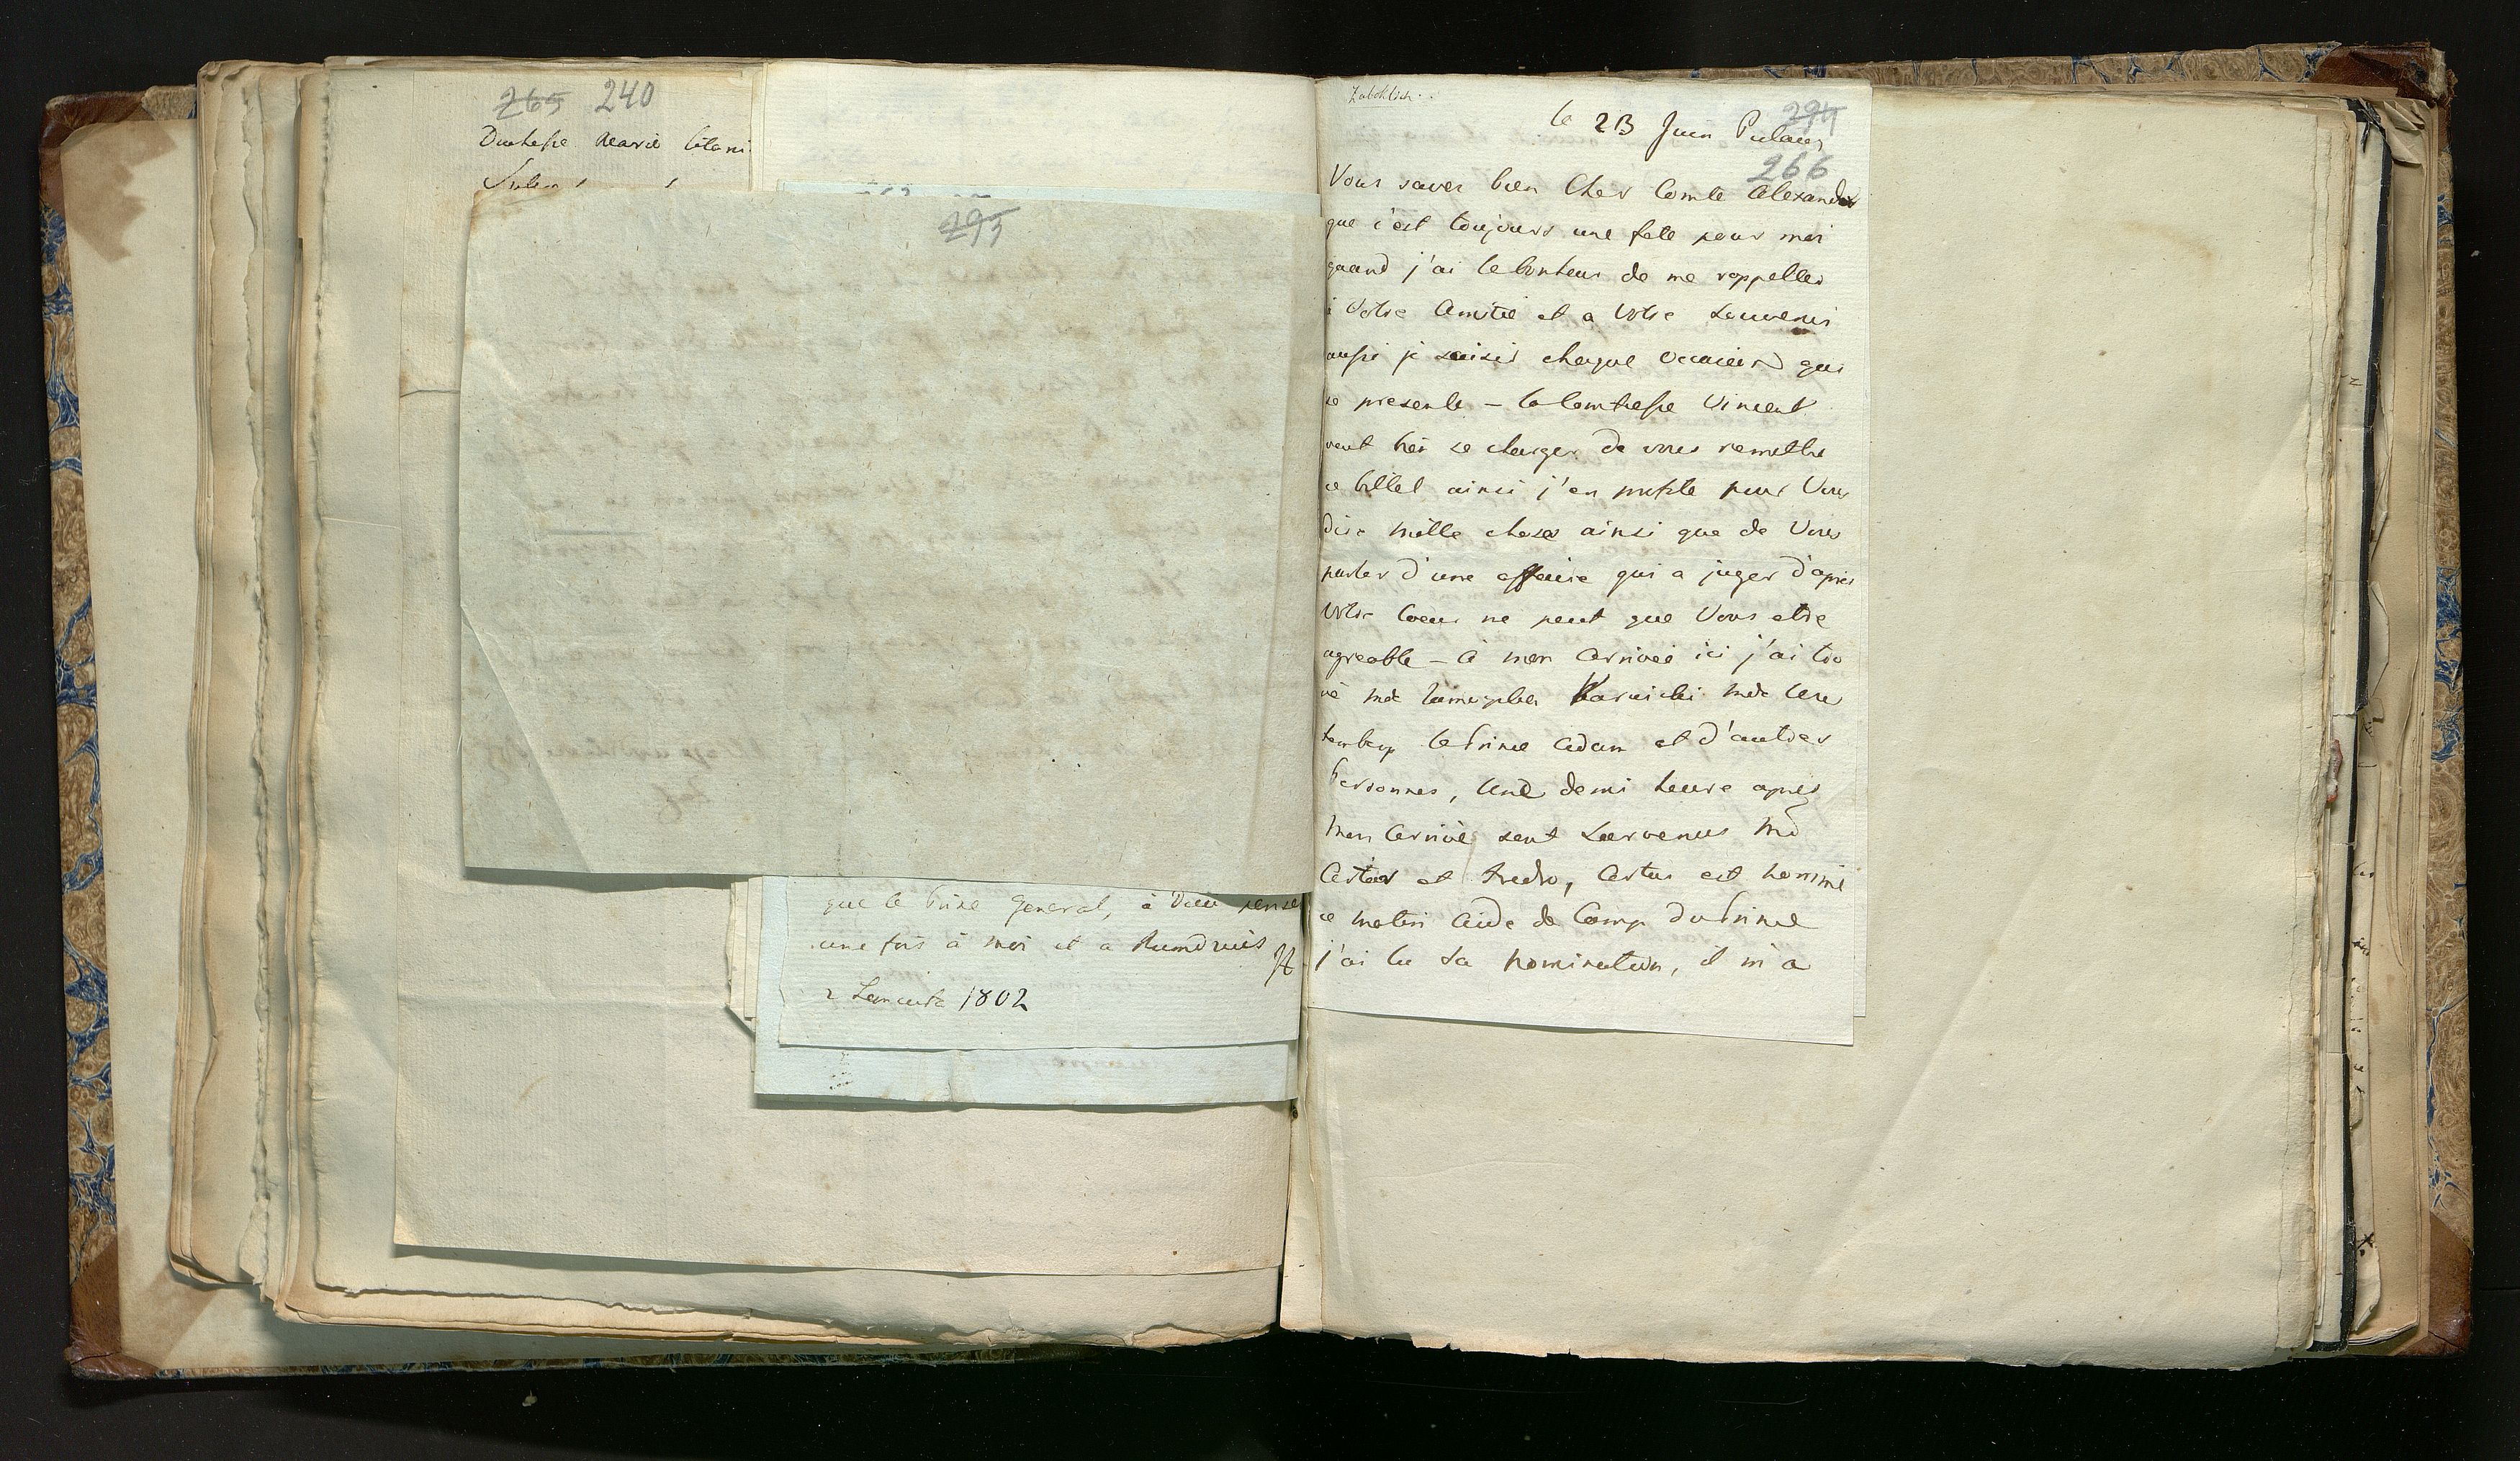 265 240
Duchesse Marie
293
que le Prince General, à Dieu pense
une fois à moi et a
2 1802
294
le 23 Juin Pulawy
266
Vous savez bien Cher Comte Alexandre
que c'est toujours une fete pour moi
quand j'ai le bonheur de me rappeller
à Votre Amitié et a Votre Souvenir
aussi je saisis chaque occasion qui
se presente – la Comtesse Vincent
veut bien se charger de vous remettre
ce billet ainsi j'en profite pour Vous
dire mille choses ainsi que de Vous
parler d'une affaire qui a juger d'apres
Votre Coeur ne peut que Vous etre
agreable – à mon Arrivée ici j'ai trou
vé Mde Mde
le Prince Adam et d'autres
Personnes, Une demi heure apres
mon Arrivé sont Survenus
et Fredro, est nommé
ce matin Aide de Camp du Prince
j'ai lu sa nomination, il m'a